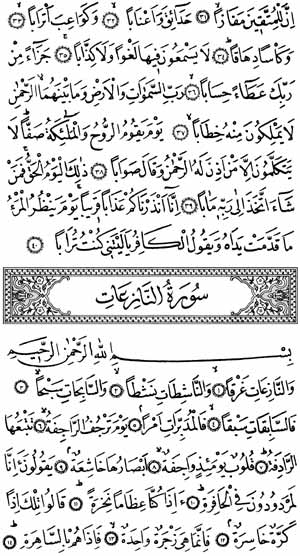 اِنَّ لِلْمُتَّقٖينَ مَفَازًاۙ ﴿٣١﴾ حَدَٓائِقَ وَاَعْنَابًاۙ ﴿٣٢﴾ وَكَوَاعِبَ اَتْرَابًاۙ ﴿٣٣﴾
وَكَأْسًا دِهَاقًاۜ ﴿٣٤﴾ لَا يَسْمَعُونَ فٖيهَا لَغْوًا وَلَا كِذَّابًاۚ ﴿٣٥﴾ جَزَٓاءً مِنْ
رَبِّكَ عَطَٓاءً حِسَابًاۙ ﴿٣٦﴾ رَبِّ السَّمٰوَاتِ وَالْاَرْضِ وَمَا بَيْنَهُمَا الرَّحْمٰنِ
لَا يَمْلِكُونَ مِنْهُ خِطَابًاۚ ﴿٣٧﴾ يَوْمَ يَقُومُ الرُّوحُ وَالْمَلٰٓئِكَةُ صَفًّاۜ لَا
يَتَكَلَّمُونَ اِلَّا مَنْ اَذِنَ لَهُ الرَّحْمٰنُ وَقَالَ صَوَابًا ﴿٣٨﴾ ذٰلِكَ الْيَوْمُ الْحَقُّۚ فَمَنْ
شَٓاءَ اتَّخَذَ اِلٰى رَبِّهٖ مَاٰبًا ﴿٣٩﴾ اِنَّٓا اَنْذَرْنَاكُمْ عَذَابًا قَرٖيبًاۚ يَوْمَ يَنْظُرُ الْمَرْءُ
مَا قَدَّمَتْ يَدَاهُ وَيَقُولُ الْكَافِرُ يَا لَيْتَنٖى كُنْتُ تُرَابًا ﴿٤٠﴾
سُورَةُ النَّازِعَاتِ
بِسْمِ اللّٰهِ الرَّحْمٰنِ الرَّحٖيمِ
وَالنَّازِعَاتِ غَرْقًاۙ ﴿١﴾ وَالنَّاشِطَاتِ نَشْطًاۙ ﴿٢﴾ وَالسَّابِحَاتِ سَبْحًاۙ ﴿٣﴾
فَالسَّابِقَاتِ سَبْقًاۙ ﴿٤﴾ فَالْمُدَبِّرَاتِ اَمْرًاۢ ﴿٥﴾ يَوْمَ تَرْجُفُ الرَّاجِفَةُۙ ﴿٦﴾ تَتْبَعُهَا
الرَّادِفَةُۜ ﴿٧﴾ قُلُوبٌ يَوْمَئِذٍ وَاجِفَةٌۙ ﴿٨﴾ اَبْصَارُهَا خَاشِعَةٌۢ ﴿٩﴾ يَقُولُونَ ءَاِنَّا
لَمَرْدُودُونَ فِى الْحَافِرَةِۜ ﴿١٠﴾ ءَاِذَا كُنَّا عِظَامًا نَخِرَةًۜ ﴿١١﴾ قَالُوا تِلْكَ اِذًا
كَرَّةٌ خَاسِرَةٌۢ ﴿١٢﴾ فَاِنَّمَا هِىَ زَجْرَةٌ وَاحِدَةٌۙ ﴿١٣﴾ فَاِذَا هُمْ بِالسَّاهِرَةِۜ ﴿١٤﴾